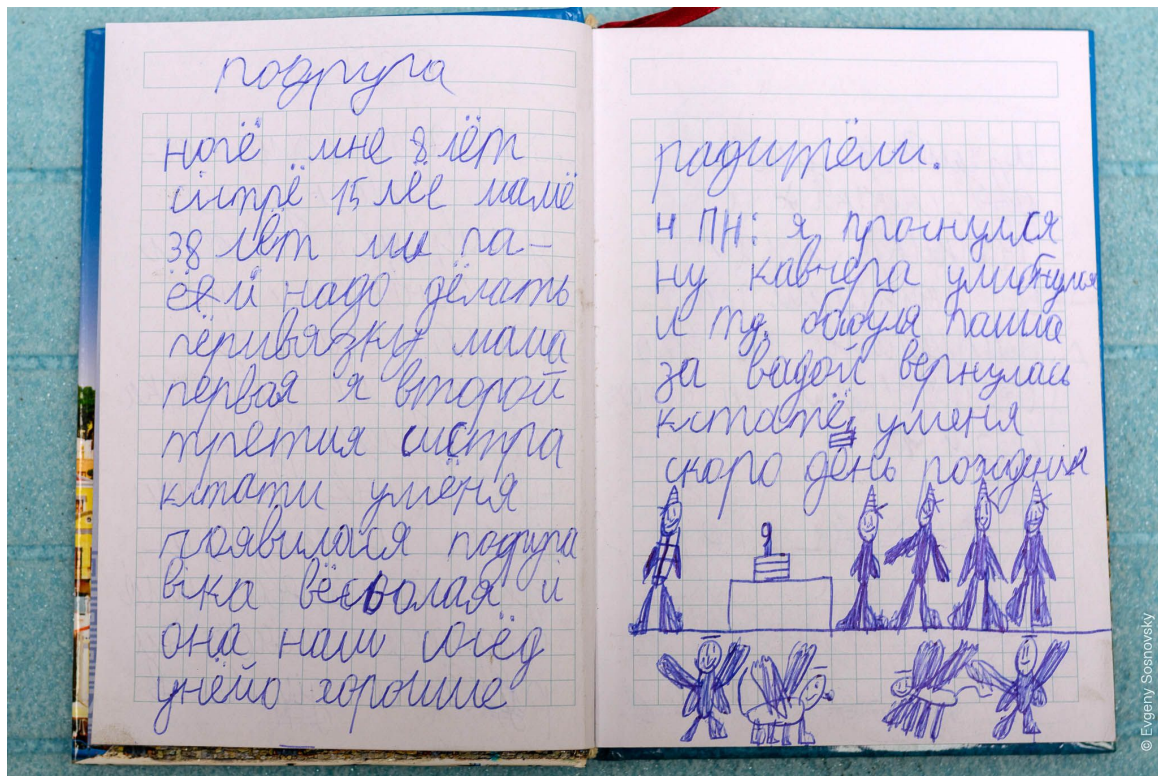 подруга
ногё мне 8 лёт
систрё 15 лее мамё
38 лёт мы па-
ёй надо дёлать
пёривязку мама
первая я второй
третия систра
кстати умёня
появилася подруга
віка вёсьолая и
она наш сосёд
унёйо хорошие
радитёли.
ч ПН: я проснулся
ну кавчера улибнулся
и тд. бабуля пашла
за вадой вернулась
кстатё уменя
скоро день пождения
9
© Evgeny Sosnovsky